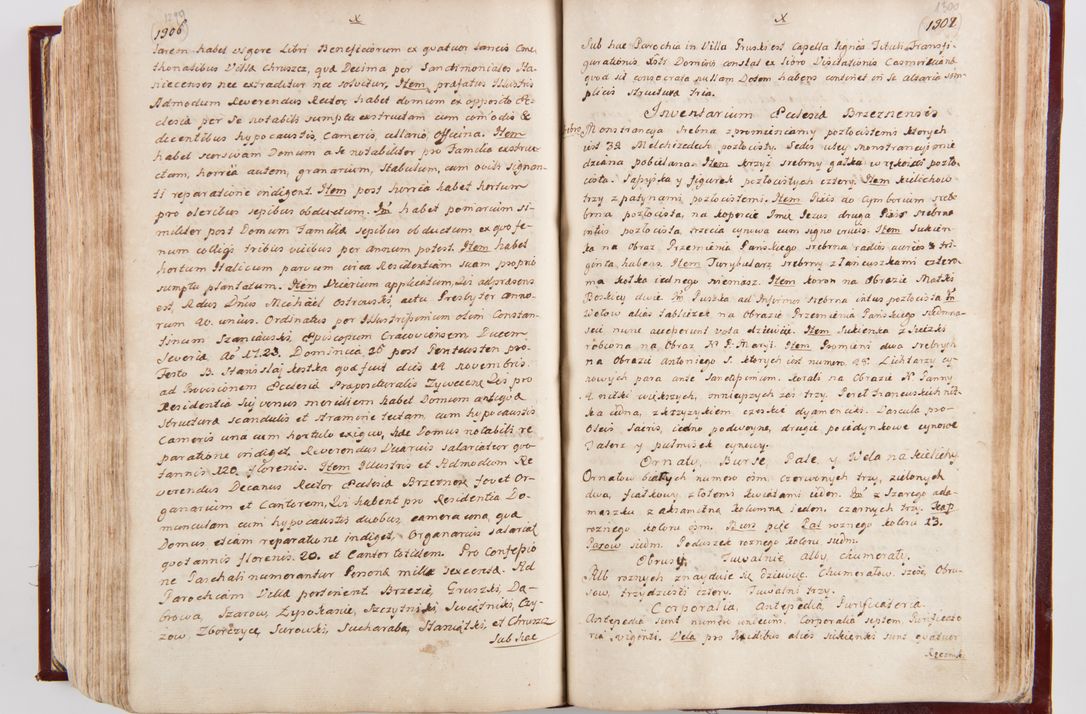 1306
X
sarem habet vigore Libri Beneficiorum ex quatuor Laneis Cme-
thonalibus Villæ Chruszcz, quæ Decima per Sanctimoniales Sta-
niecenses nec extraditur nec solvitur, Item præfatus Illustris
Admodum Reverendus Rector, habet domum ex opposito Ec-
clesiæ per se notabili sumptu exstructam cum comodis &
decentibus hypocaustis, Cameris, cellario, officina. Item
habet seorsivam Domum a se notabiliter pro Familia exstru-
ctam, horrea autem, granarium, Stabulum, cum ovili
ti reparatione indigent. Item post horrea habet hortum
pro oleribus sepibus obductum. Itẽ habet pomarium si-
militer post Domum Familiæ sepibus obductum ex quo fe-
num colligi tribus vicibus per annum potest. Item habet
hortum Italicum parvum circa Residentiam suam proprio
sumptu plantatum. Item Vicarium applicatum, Qui ad præsens
est, Rdus Dnus Michael Ostrowski, actu Presbyter anno-
rum 40. unius. Ordinatus per Illustrissimum olim Constan-
tinum Szaniawski, Episcopum Cracoviensem, Ducem
Severiæ Ao 1723. Dominica 26 post Pentecosten pro
Festo B. Stanislai Kostka quod fuit dies 14 novembris.
ad Provisionem Ecclesiæ Præposituralis Zyvecen: Qui pro
Residentia Sui versus meridiem habet Domum antiqua
structura scandulis et stramine tectam, cum hypocaustis
Cameris una cum hortulo exiguo, hæc Domus notabili re
paratione indiget, Reverendus Vicarius salariatur quo-
tannis 120 florenis. Item Illustris et Admodum Re
verendus Decanus Rector Ecclesiæ Brzeznen: fovet Or-
ganarium et Cantorem, Qui habent pro Residentia Do-
munculam cum hypocaustis duobus, camera una, quæ
Domus etiam reparatione indiget, Organarius salariat
quotannis florenis. 20. et Cantor totidem. Pro Confessio
ne Paschali numerantur Personæ mille sexcentæ. Ad
Parochiam Villæ pertinent Brzezie, Gruszki, Da-
browa, Szarow, Łysokanie, Szczytniki, Swiątniki, Czy-
zow Zborczyce, Surowki, Sucharaba, Staniątki, et Chruszcz
Sub hac
1300
1308
X
Sub hac Parochia in Villa Gruski est Capella ligneæ Tituli Transfi-
gurationis Xsti Domini constat ex libro Visitationis
quod sit consecrata nullam Dotem habens continet in se altaria sim-
plicis structuræ tria.
Inventarium Ecclesiæ Brzeznensis
Monstrancya srebrna z promieniamy pozłocistemi ktorych
iest 32 Melchizedech pozłocisty. Sedes utey monstrancyi mie
dziana pobielana. Item krzyż srebrny gałka w rękoieści pozło
cista. y figurek pozłocistych cztery. Item kielichow
trzy z patynami pozłocistemi. Item Pixis do Cymborium sreb
brna pozłocista, na koperce Imie Iezus druga Pixis srebrna
intus pozłocista, trzecia cynowa cum signo crucis. Item Sukien-
ka na Obraz Przemienia Pańskiego srebrna radios aureos 3 tri-
ginta, habens. Item Turybularz srebrny z łancuszkami cztero-
ma kołka iednego niemasz. Item koron na Obrazie Matki
Boskiey dwie. Itẽ Puszka ad Infirmos srebrna intus pozłocista Itẽ
Wotow alias tabliczek na Obrazie Przemienia Pańskiego siedmna-
scie nunc accesserunt vota dziewięć. Item Sukienka z siecizki
robiona na Obraz N. P. Maryi. Item Promieni dwa srebrnych
na Obrazie Antoniego S. ktorych iest numero 48. Lichtarzy cy-
nowych para ante Sanctissimum. korali na Obrazie N. Panny
4 nitki większych, mnieyszych zaś trzy. Pereł Francuskich nit-
ka iedna, z krzyżykiem czeskie dyamenciki. Vascula pro
Oleis Sacris, iedno podwoyne, drugie poiedynkowe cynowe
Talerz y pułmisek cynowy.
Ornaty, Burse, Pale, y Wela na kielichy
Ornatow białych numero ośm, czerwonych trzy, zielonych
dwa, fiałkowy z złotemi kwiatami ieden. Itẽ z szarego ada-
maszku z axamitną kolumną ieden, czarnych trzy. Kap
roznego koloru ośm. Burs pięc Pal roznego koloru 13.
Pasow siedm. Poduszek roznego koloru siedm.
Obrusy, Tuwalnie, alby, chumeraly.
Alb roznych znayduie się dziewięc. Chumerałow sześc, Obru-
sow, trzydziesci cztery. Tuwalni trzy.
Corporalia, Antepedia, Purificatoria.
Antepedia sunt numero undecim. Corporalia septem, Purificato
ria viginti. Vela pro Pixidibus alias sukienki sunt quatuor
Ręcznik: